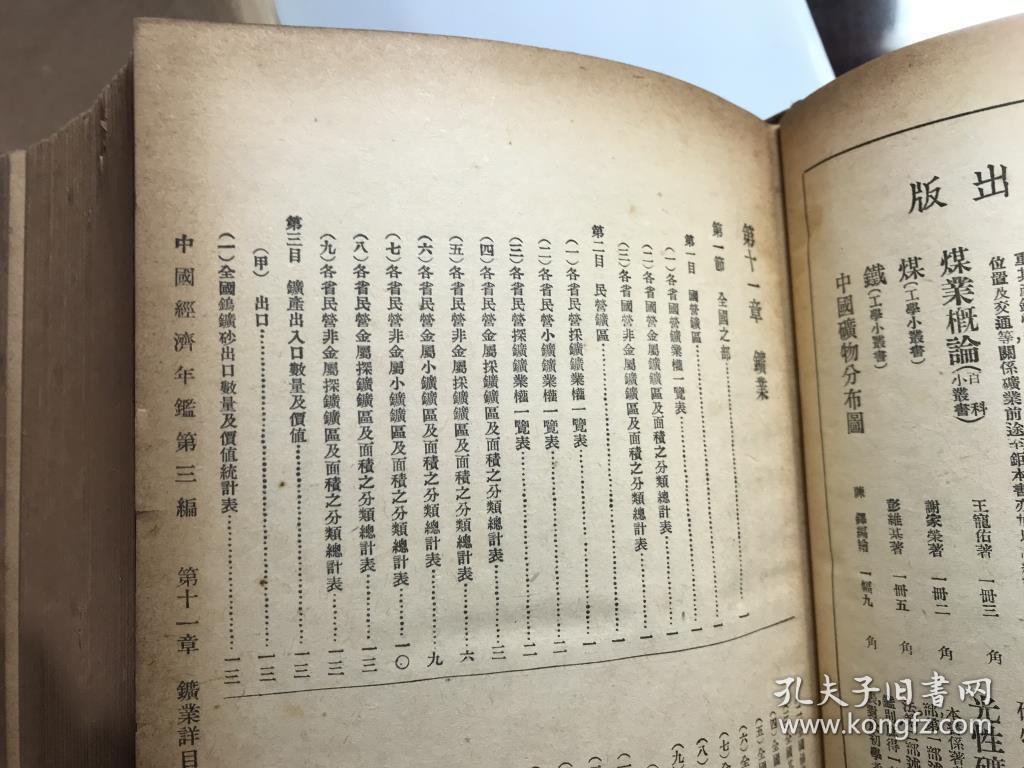 出版
重其
位置及交通等關係礦業前途
煤業概論(百科小叢書) 王寵佑著 一冊三角
煤(工學小叢書) 謝家榮著 一冊二角
鐵(工學小叢書) 彭維基著 一冊五角
中國礦物分布圖 陳 一幅九角
光性礦
第十一章 鑛業
第一節 全國之部……一
第一目 國營鑛區……一
(一)各省國營鑛業權一覽表……一
(二)各省國營金屬鑛鑛區及面積之分類總計表……一
(三)各省國營非金屬鑛鑛區及面積之分類總計表……一
第二目 民營鑛區……一
(一)各省民營採鑛鑛業權一覽表……一
(二)各省民營小鑛鑛業權一覽表……二
(三)各省民營探鑛鑛業權一覽表……二
(四)各省民營金屬採鑛鑛區及面積之分類總計表……三
(五)各省民營非金屬採鑛鑛區及面積之分類總計表……六
(六)各省民營金屬小鑛鑛區及面積之分類總計表……九
(七)各省民營非金屬小鑛鑛區及面積之分類總計表……一〇
(八)各省民營金屬探鑛鑛區及面積之分類總計表……一三
(九)各省民營非金屬探鑛鑛區及面積之分類總計表……一三
第三目 鑛產出入口數量及價值……一三
(甲)出口……一三
(一)全國鎢鑛砂出口數量及價值統計表……一三
中國經濟年鑑第三編 第十一章 鑛業詳目
孔夫子旧书网
kongfz.com